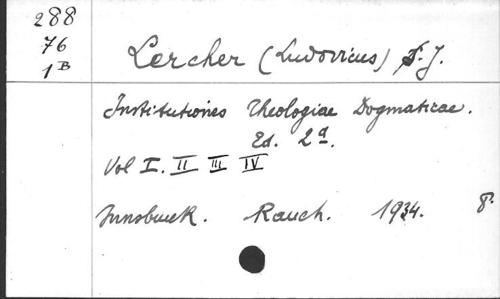 288
76
1B
Lercher (Ludovicus) S. J.
Institutiones Theologiae Dogmaticae.
Ed. 2a.
Vol I. II III IV
Innsbruck. Rauch. 1934. 8°